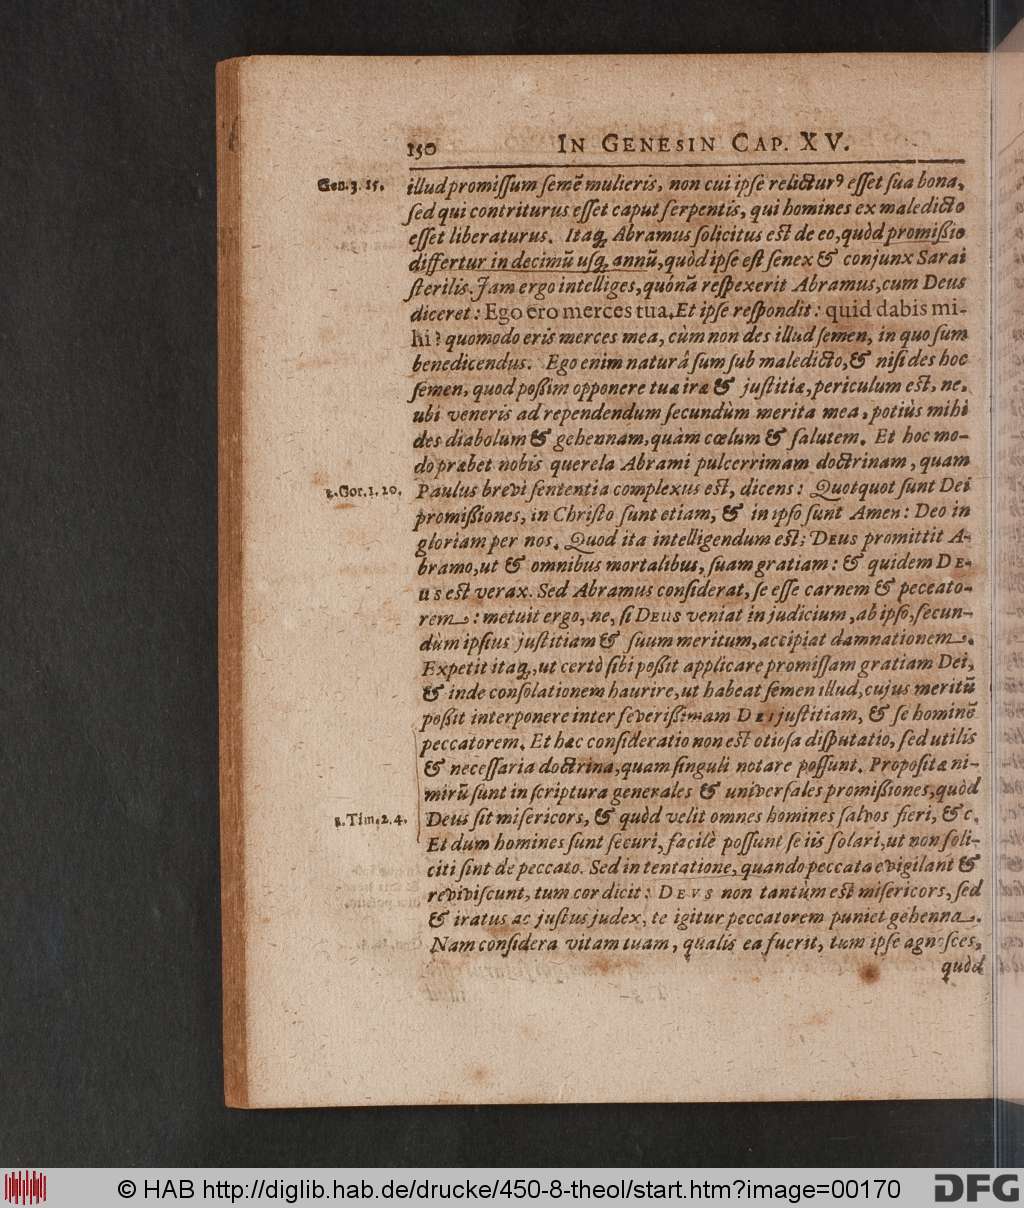 150 IN GENESIN CAP. XV.
Gen. 3. 15. illud promiſſum ſemē mulieris, non cui ipſe relicturꝰ eſſet ſua bona,
ſed qui contriturus eſſet caput ſerpentis, qui homines ex maledicto
eſſet liberaturus. Itaq; Abramus ſolicitus est de eo, quòd promißio
differtur in decimū uſq; annū, quòd ipſe eſt ſenex & conjunx Sarai
ſterilis. Jam ergo intelliges, quónā reſpexerit Abramus, cum Deus
diceret: Ego ero merces tua. Et ipſe reſpondit: quid dabis mi-
hi? quomodo eris merces mea, cùm non des illud ſemen, in quo ſum
benedicendus. Ego enim naturâ ſum ſub maledicto, & niſi des hoc
ſemen, quod poßim opponere tuæ iræ & juſtitiæ, periculum est, ne,
ubi veneris ad rependendum ſecundùm merita mea, potiùs mihi
des diabolum & gehennam, quàm cœlum & ſalutem. Et hoc mo-
do præbet nobis querela Abrami pulcerrimam doctrinam, quam
2. Cor. 1. 20. Paulus brevi ſententia complexus est, dicens: Quotquot ſunt Dei
promißiones, in Chriſto ſunt etiam, & in ipſo ſunt Amen: Deo in
gloriam per nos. Quod ita intelligendum est: DEUS promittit A-
bramo, ut & omnibus mortalibus, ſuam gratiam: & quidem DE-
US est verax. Sed Abramus conſiderat, ſe eſſe carnem & peccato-
rem: metuit ergo, ne, ſi DEUS veniat in judicium, ab ipſo, ſecun-
dùm ipſius juſtitiam & ſuum meritum, accipiat damnationem.
Expetit itaq;, ut certò ſibi poßit applicare promiſſam gratiam Dei,
& inde conſolationem haurire, ut habeat ſemen illud, cujus meritū
poßit interponere inter ſeverißimam DEI juſtitiam, & ſe hominē
peccatorem. Et hæc conſideratio non est otioſa diſputatio, ſed utilis
& neceſſaria doctrina, quam ſinguli notare poſſunt. Propoſitæ ni-
mirū ſunt in ſcriptura generales & univerſales promißiones, quòd
1. Tim. 2. 4. Deus ſit miſericors, & quòd velit omnes homines ſalvos fieri, &c.
Et dum homines ſunt ſecuri, facilè poſſunt ſe iis ſolari, ut non ſoli-
citi ſint de peccato. Sed in tentatione, quando peccata evigilant &
reviviſcunt, tum cor dicit: DEVS non tantùm est miſericors, ſed
& iratus ac juſtus judex, te igitur peccatorem puniet gehenna.
Nam conſidera vitam tuam, qualis ea fuerit, tum ipſe agnoſces,
quòd
© HAB http://diglib.hab.de/drucke/450-8-theol/start.htm?image=00170 DFG